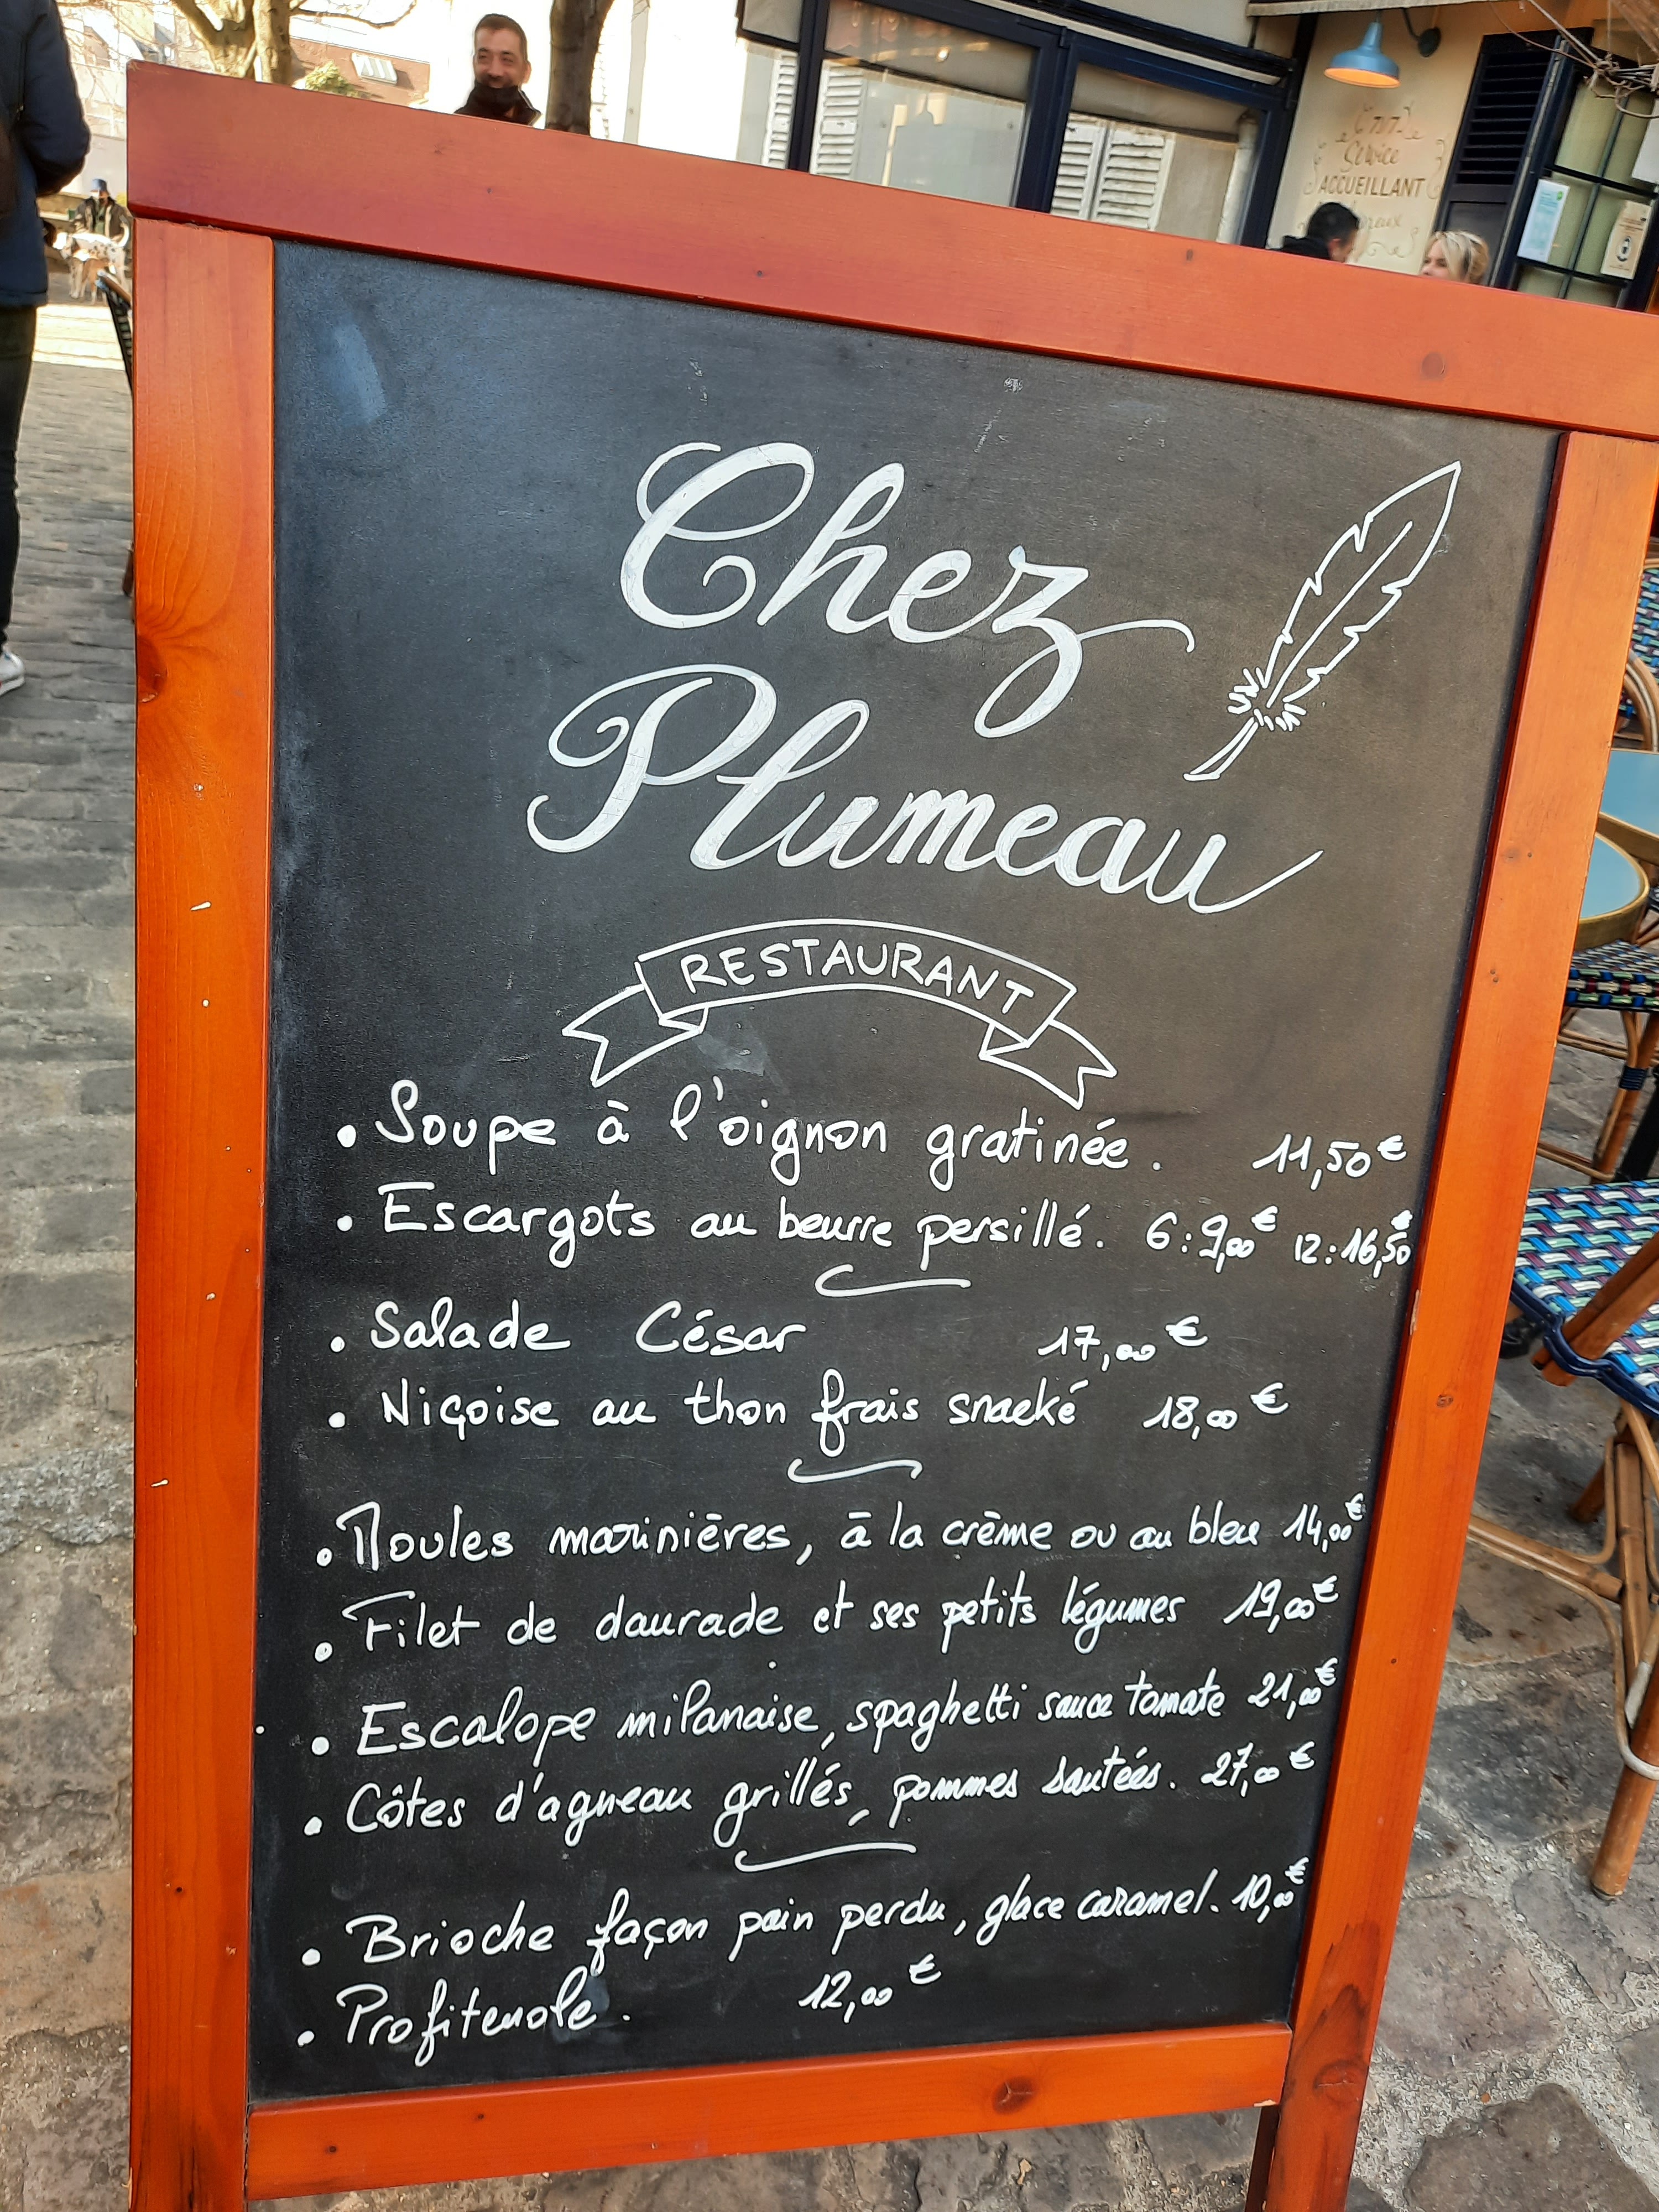 Service
ACCUEILLANT
Chez
Plumeau
RESTAURANT
• Soupe à l'oignon gratinée. 11,50€
• Escargots au beurre persillé. 6:9,00€ 12:16,50€
• Salade César 17,00€
• Niçoise au thon frais snacké 18,00€
• Moules marinières, à la crème ou au bleu 14,00€
• Filet de daurade et ses petits légumes 19,00€
• Escalope milanaise, spaghetti sauce tomate 21,00€
• Côtes d'agneau grillés, pommes sautées. 27,00€
• Brioche façon pain perdu, glace caramel. 10,00€
• Profiterole. 12,00€